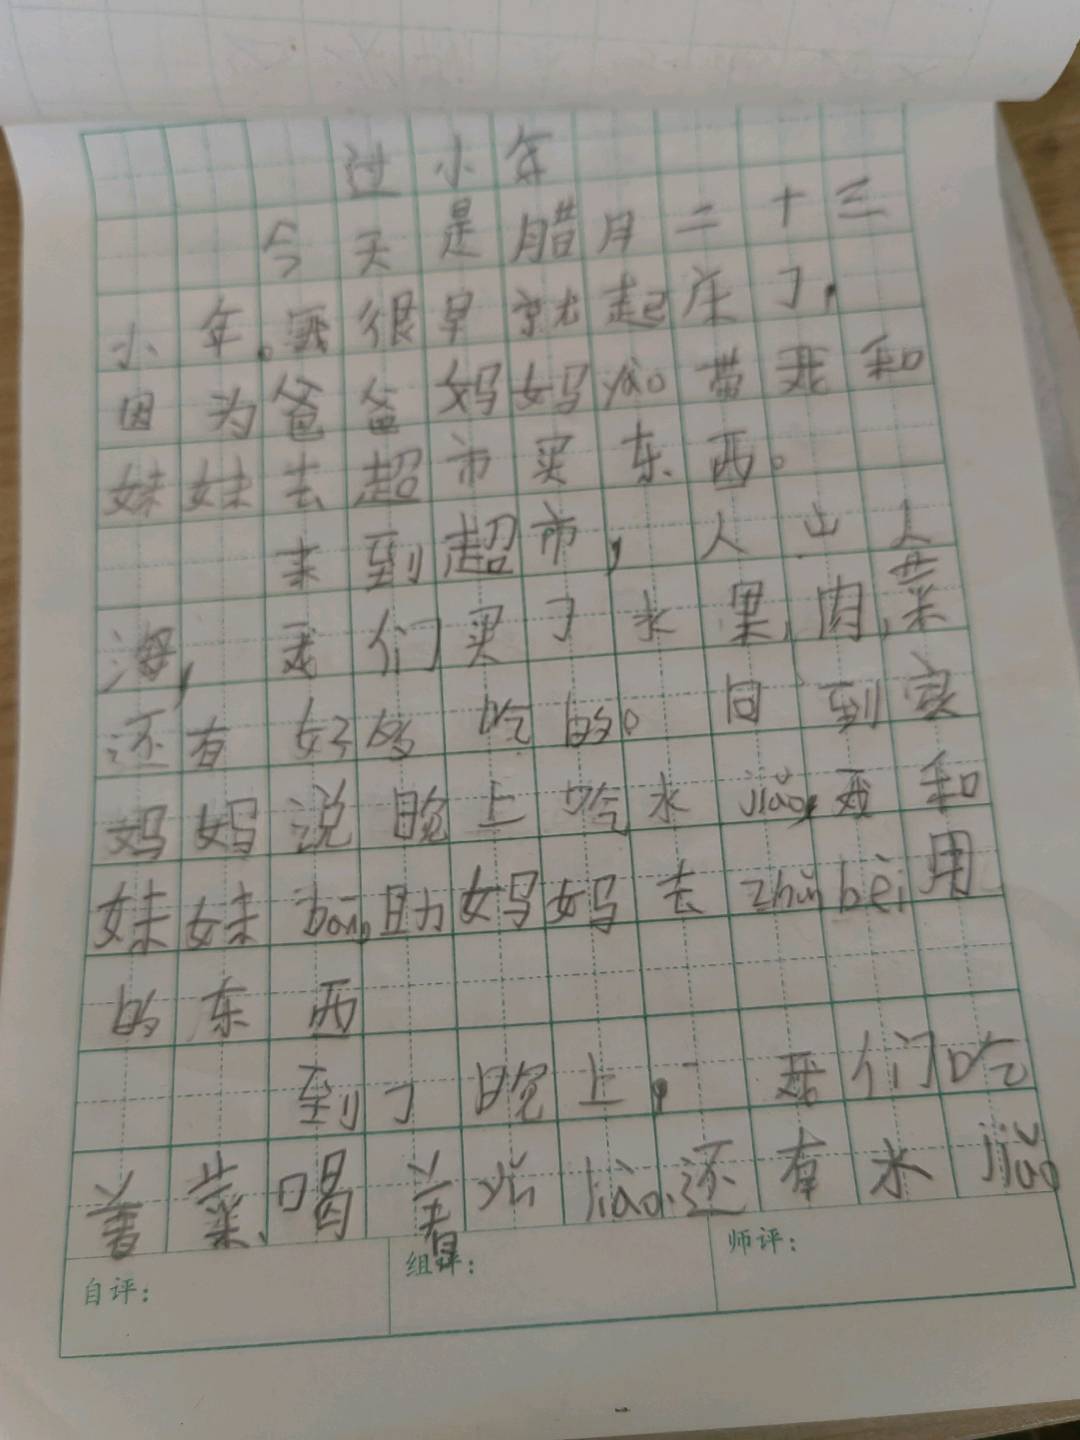 过小年
今天是腊月二十三
小年。我很早就起床了,
因为爸爸妈妈yào带我和
妹妹去超市买东西。
来到超市,人山人
海,我们买了水果,肉,菜
还有好多吃的。回到家
妈妈说晚上吃水jiǎo,我和
妹妹bāng助妈妈去zhǔnbèi用
的东西
到了晚上,我们吃
着菜、喝着yǐnliào.还有水jiǎo
自评: 组评: 师评: